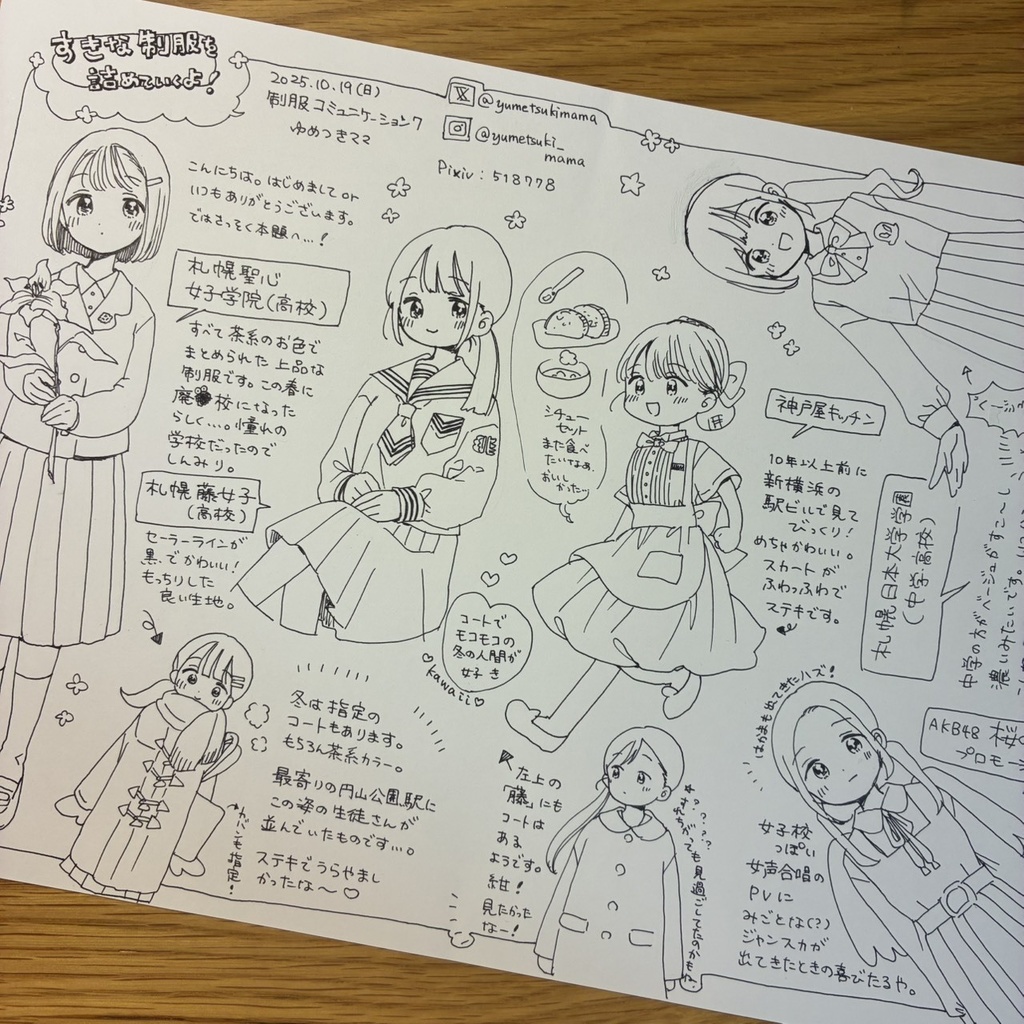 すきな制服を
詰めていくよ!
2025.10.19(日)
制服コミュニケーション7
ゆめつきママ
@yumetsukimama
@yumetsuki_
mama
Pixiv: 518778
こんにちは。はじめまして or
いつもありがとうございます。
ではさっそく本題へ…!
札幌聖心
女子学院(高校)
すべて茶系のお色で
まとめられた上品な
制服です。この春に
廃校になった
らしく…。憧れの
学校だったので
しんみり。
札幌藤女子
(高校)
セーラーラインが
黒、でかわいい!
もっちりした
良い生地。
シチュー
セット
また食べ
たいなぁ。
おいし
かったッ
神戸屋キッチン
10年以上前に
新横浜の
駅ビルで見て
びっくり!
めちゃかわいい。
スカートが
ふわっふわで
ステキです。
札幌日本大学学園
(中学高校)
中学の方がベージュがすこ〜し
濃いみたいです。
コートで
モコモコの
冬の人間が
好き
kawaii
冬は指定の
コートもあります。
もちろん茶系カラー。
最寄りの円山公園駅に
この姿の生徒さんが
並んでいたものです…。
ステキでうらやまし
かったな〜
カバンも指定!
左上の
「藤」にも
コートは
ある
ようです。
紺!
見たかった
なー!
????
すれちがっても見過ごしてたのかもな
はかまも出てきたハズ!
AKB48
プロモー
女子校
っぽい
女声合唱の
PVに
みごとな(?)
ジャンスカが
出てきたときの喜びたるや。